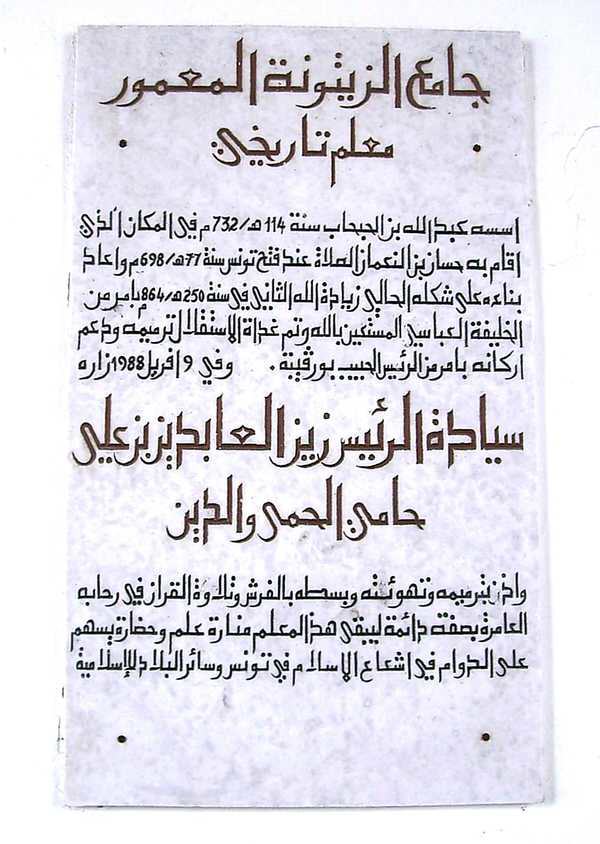 جامع الزيتونة المعمور
معلم تاريخي
اسسه عبد الله بن الحبحاب سنة 114 هـ/732 م في المكان الذي
اقام به حسان بن النعمان الصلاة عند فتح تونس سنة 77هـ/698م واعاد
بناءه على شكله الحالي زيادة الله الثاني في سنة 250هـ/864م بامر من
الخليفة العباسي المستعين بالله وتم غداة الاستقلال ترميمه ودعم
اركانه بامر من الرئيس الحبيب بورقيبة . وفي 9 افريل 1988 زاره
سيادة الرئيس زين العابدين بن علي
حامي الحمى والدين
واذن بترميمه وتهوئته وبسطه بالفرش وتلاوة القران في رحابه
العامرة بصفة دائمة ليبقى هذا المعلم منارة علم وحضارة يسهم
على الدوام في اشعاع الاسلام في تونس وسائر البلاد الاسلامية